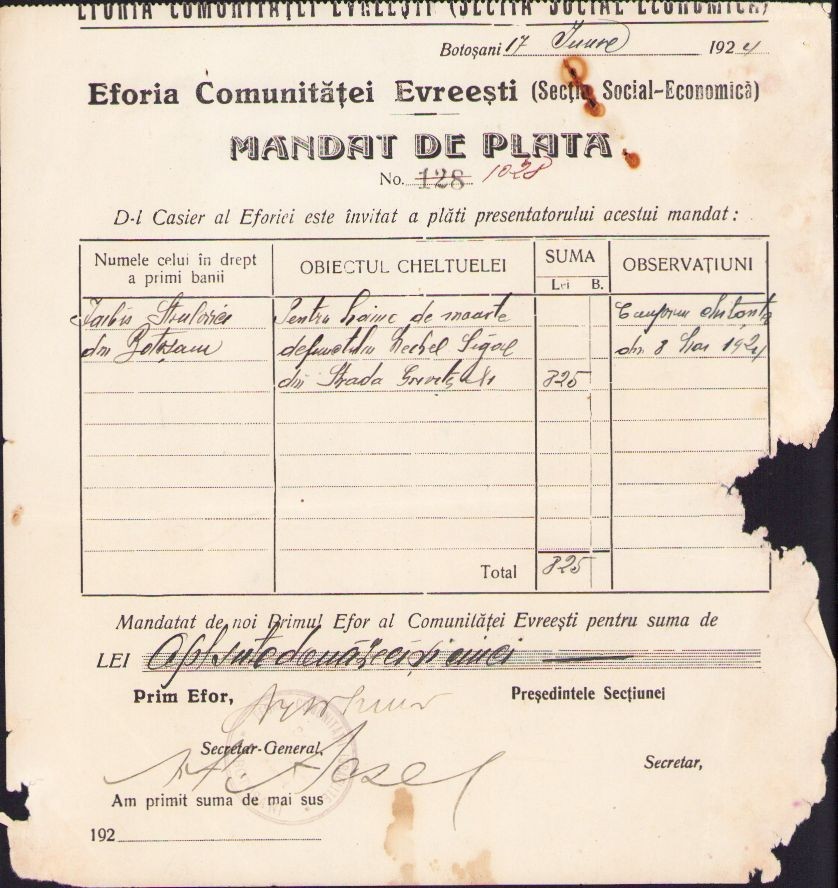 EFORIA COMUNITĂȚEI EVREEȘTI (SECȚIA SOCIAL ECONOMICĂ)
Botoșani 17 Iunie 1924
Eforia Comunităței Evreești (Secția Social-Economică)
MANDAT DE PLATA
No. 128 1028
D-l Casier al Eforiei este învitat a plăti presentatorului acestui mandat:
Numele celui în drept a primi banii
OBIECTUL CHELTUELEI
SUMA
Lei B.
OBSERVAȚIUNI
din Botoșani
Pentru haine de moarte
defunctului Segal
din Strada
825
din 8 1924
Total 825
Mandatat de noi Primul Efor al Comunităței Evreești pentru suma de
LEI Optsutedouăzecișicinci
Prim Efor,
Președintele Secțiunei
Secretar-General,
Secretar,
Am primit suma de mai sus
192